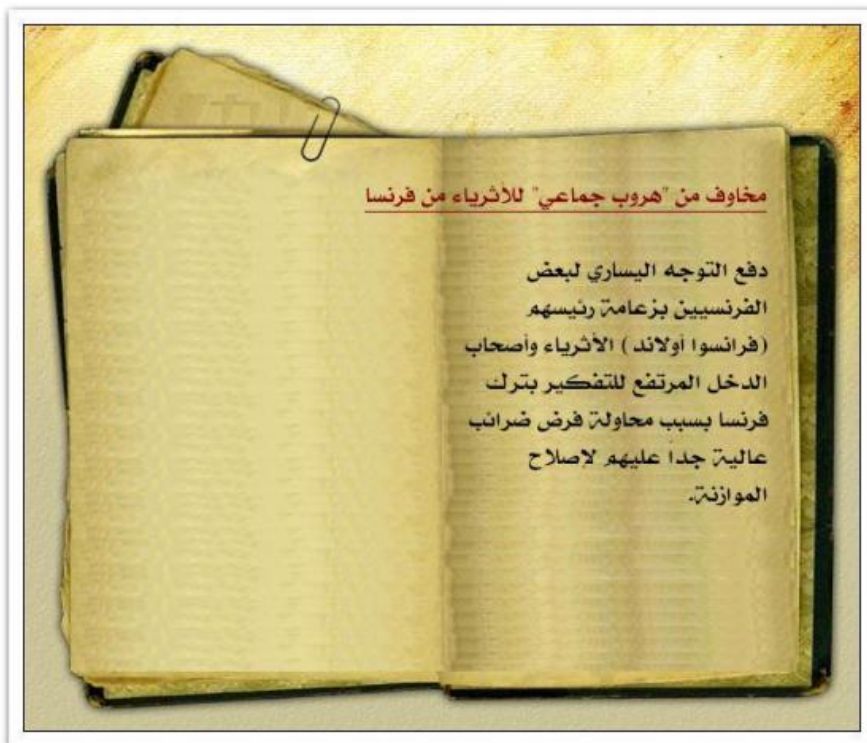 مخاوف من "هروب جماعي" للأثرياء من فرنسا
دفع التوجه اليساري لبعض
الفرنسيين بزعامة رئيسهم
(فرانسوا أولاند) الأثرياء وأصحاب
الدخل المرتفع للتفكير بترك
فرنسا بسبب محاولة فرض ضرائب
عالية جداً عليهم لإصلاح
الموازنة.